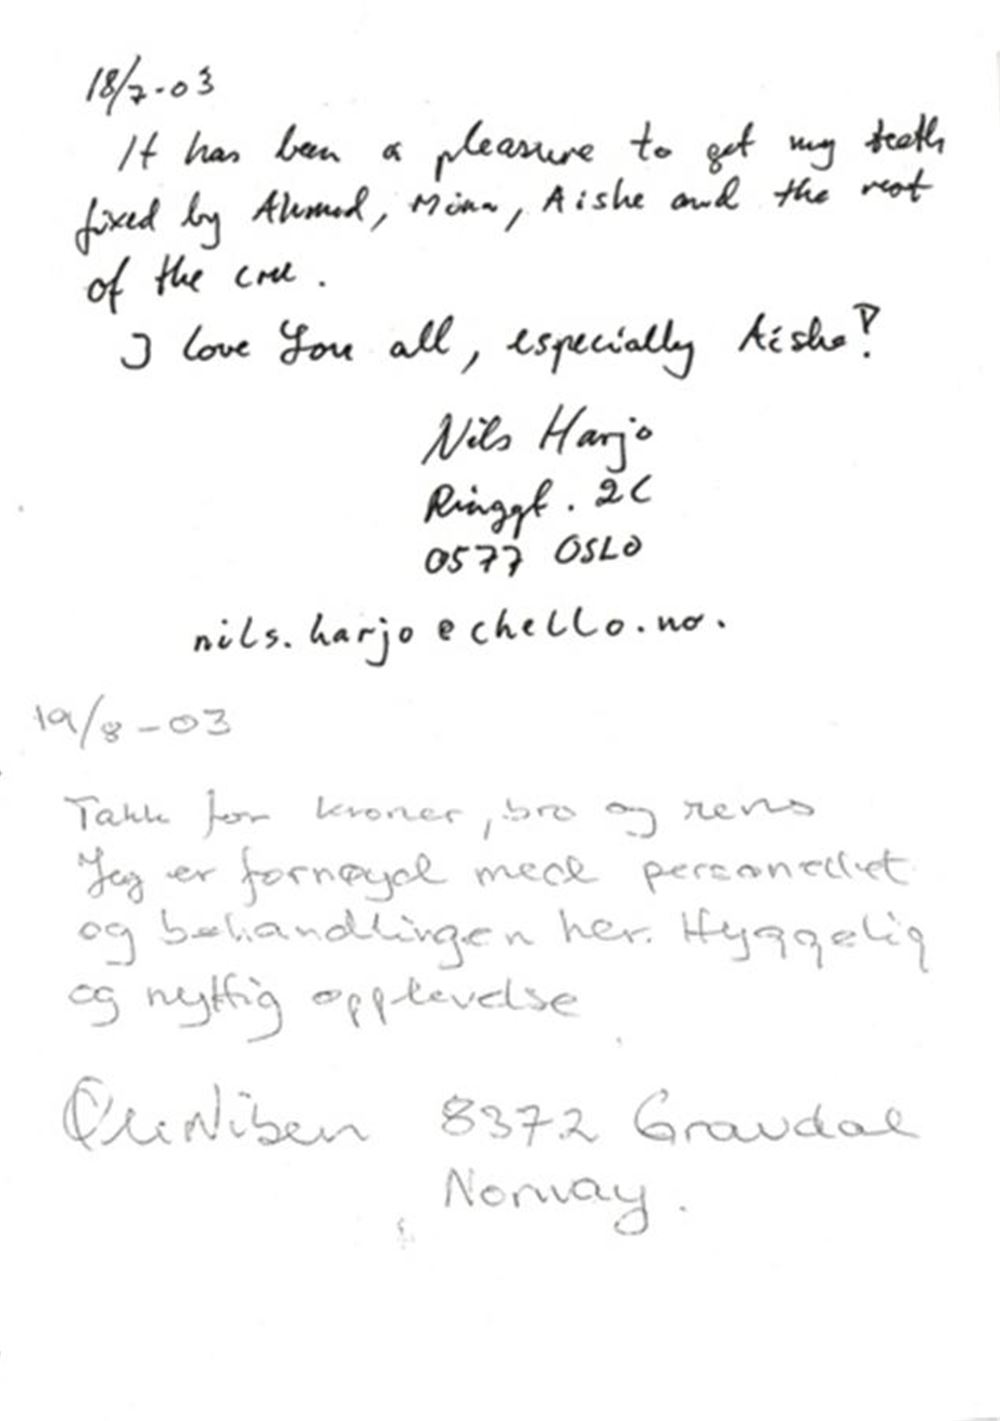 18/7-03
It has been a pleasure to get my teeth
fixed by Ahmed, Mina, Aishe and the rest
of the crue.
I love You all, especially Aishe!
Nils Harjo
Ringgt. 2C
0577 OSLO
nils.harjo@chello.no.
19/8-03
Takk for kroner, bro og rens
Jeg er fornøyd med personellet
og behandlingen her. Hyggelig
og nyttig opplevelse
8372 Gravdal
Norway.